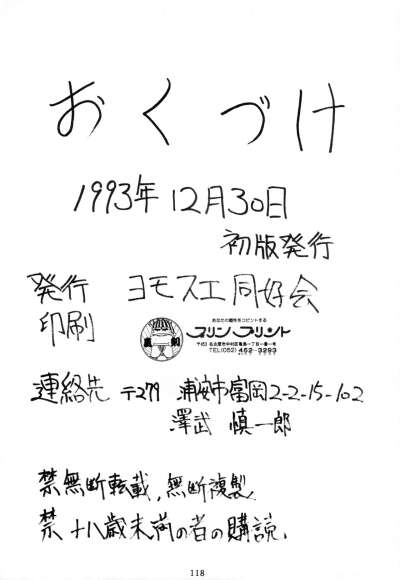 おくづけ
1993年12月30日
初版発行
発行 ヨモスエ同好会
印刷
あなたの個性をコピントする
プリンプリント
〒453 名古屋市中村区亀島一丁目一番一号
TEL(052) 452-3293
連絡先 〒279 浦安市富岡2-2-15-102
澤武 慎一郎
禁無断転載,無断複製.
禁十八歳未満の者の購読.
118